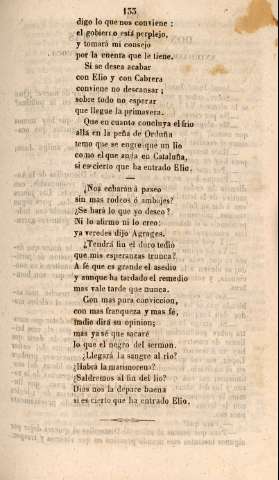 133
digo lo que nos conviene ;
el gobierno está perplejo,
y tomará mi consejo
por la cuenta que le tiene.
Si se desea acabar
con Elio y con Cabrera
conviene no descansar ;
sobre todo no esperar
que llegue la primavera.
Que en cuanto concluya el frio
allá en la peña de Orduña
temo que se engrelque un lio
como el que anda en Cataluña,
si es cierto que ha entrado Elio.
¿Nos echarán á paseo
sin mas rodeos ó ambajes?
¿Se hará lo que yo deseo ?
Ni lo afirmo ni lo creo:
ya veredes dijo Agrages.
¿Tendrá fin el duro tedio
que mis esperanzas trunca?
A fé que es grande el asedio
y aunque ha tardado el remedio
mas vale tarde que nunca.
Con mas pura conviccion,
con mas franqueza y mas fé,
nadie dirá su opinion;
mas ya sé que sacaré
lo que el negro del sermon.
¿Llegará la sangre al rio?
¿Habrá la marimorena?
¿Saldremos al fin del lio?
Dios nos la depare buena
si es cierto que ha entrado Elio.